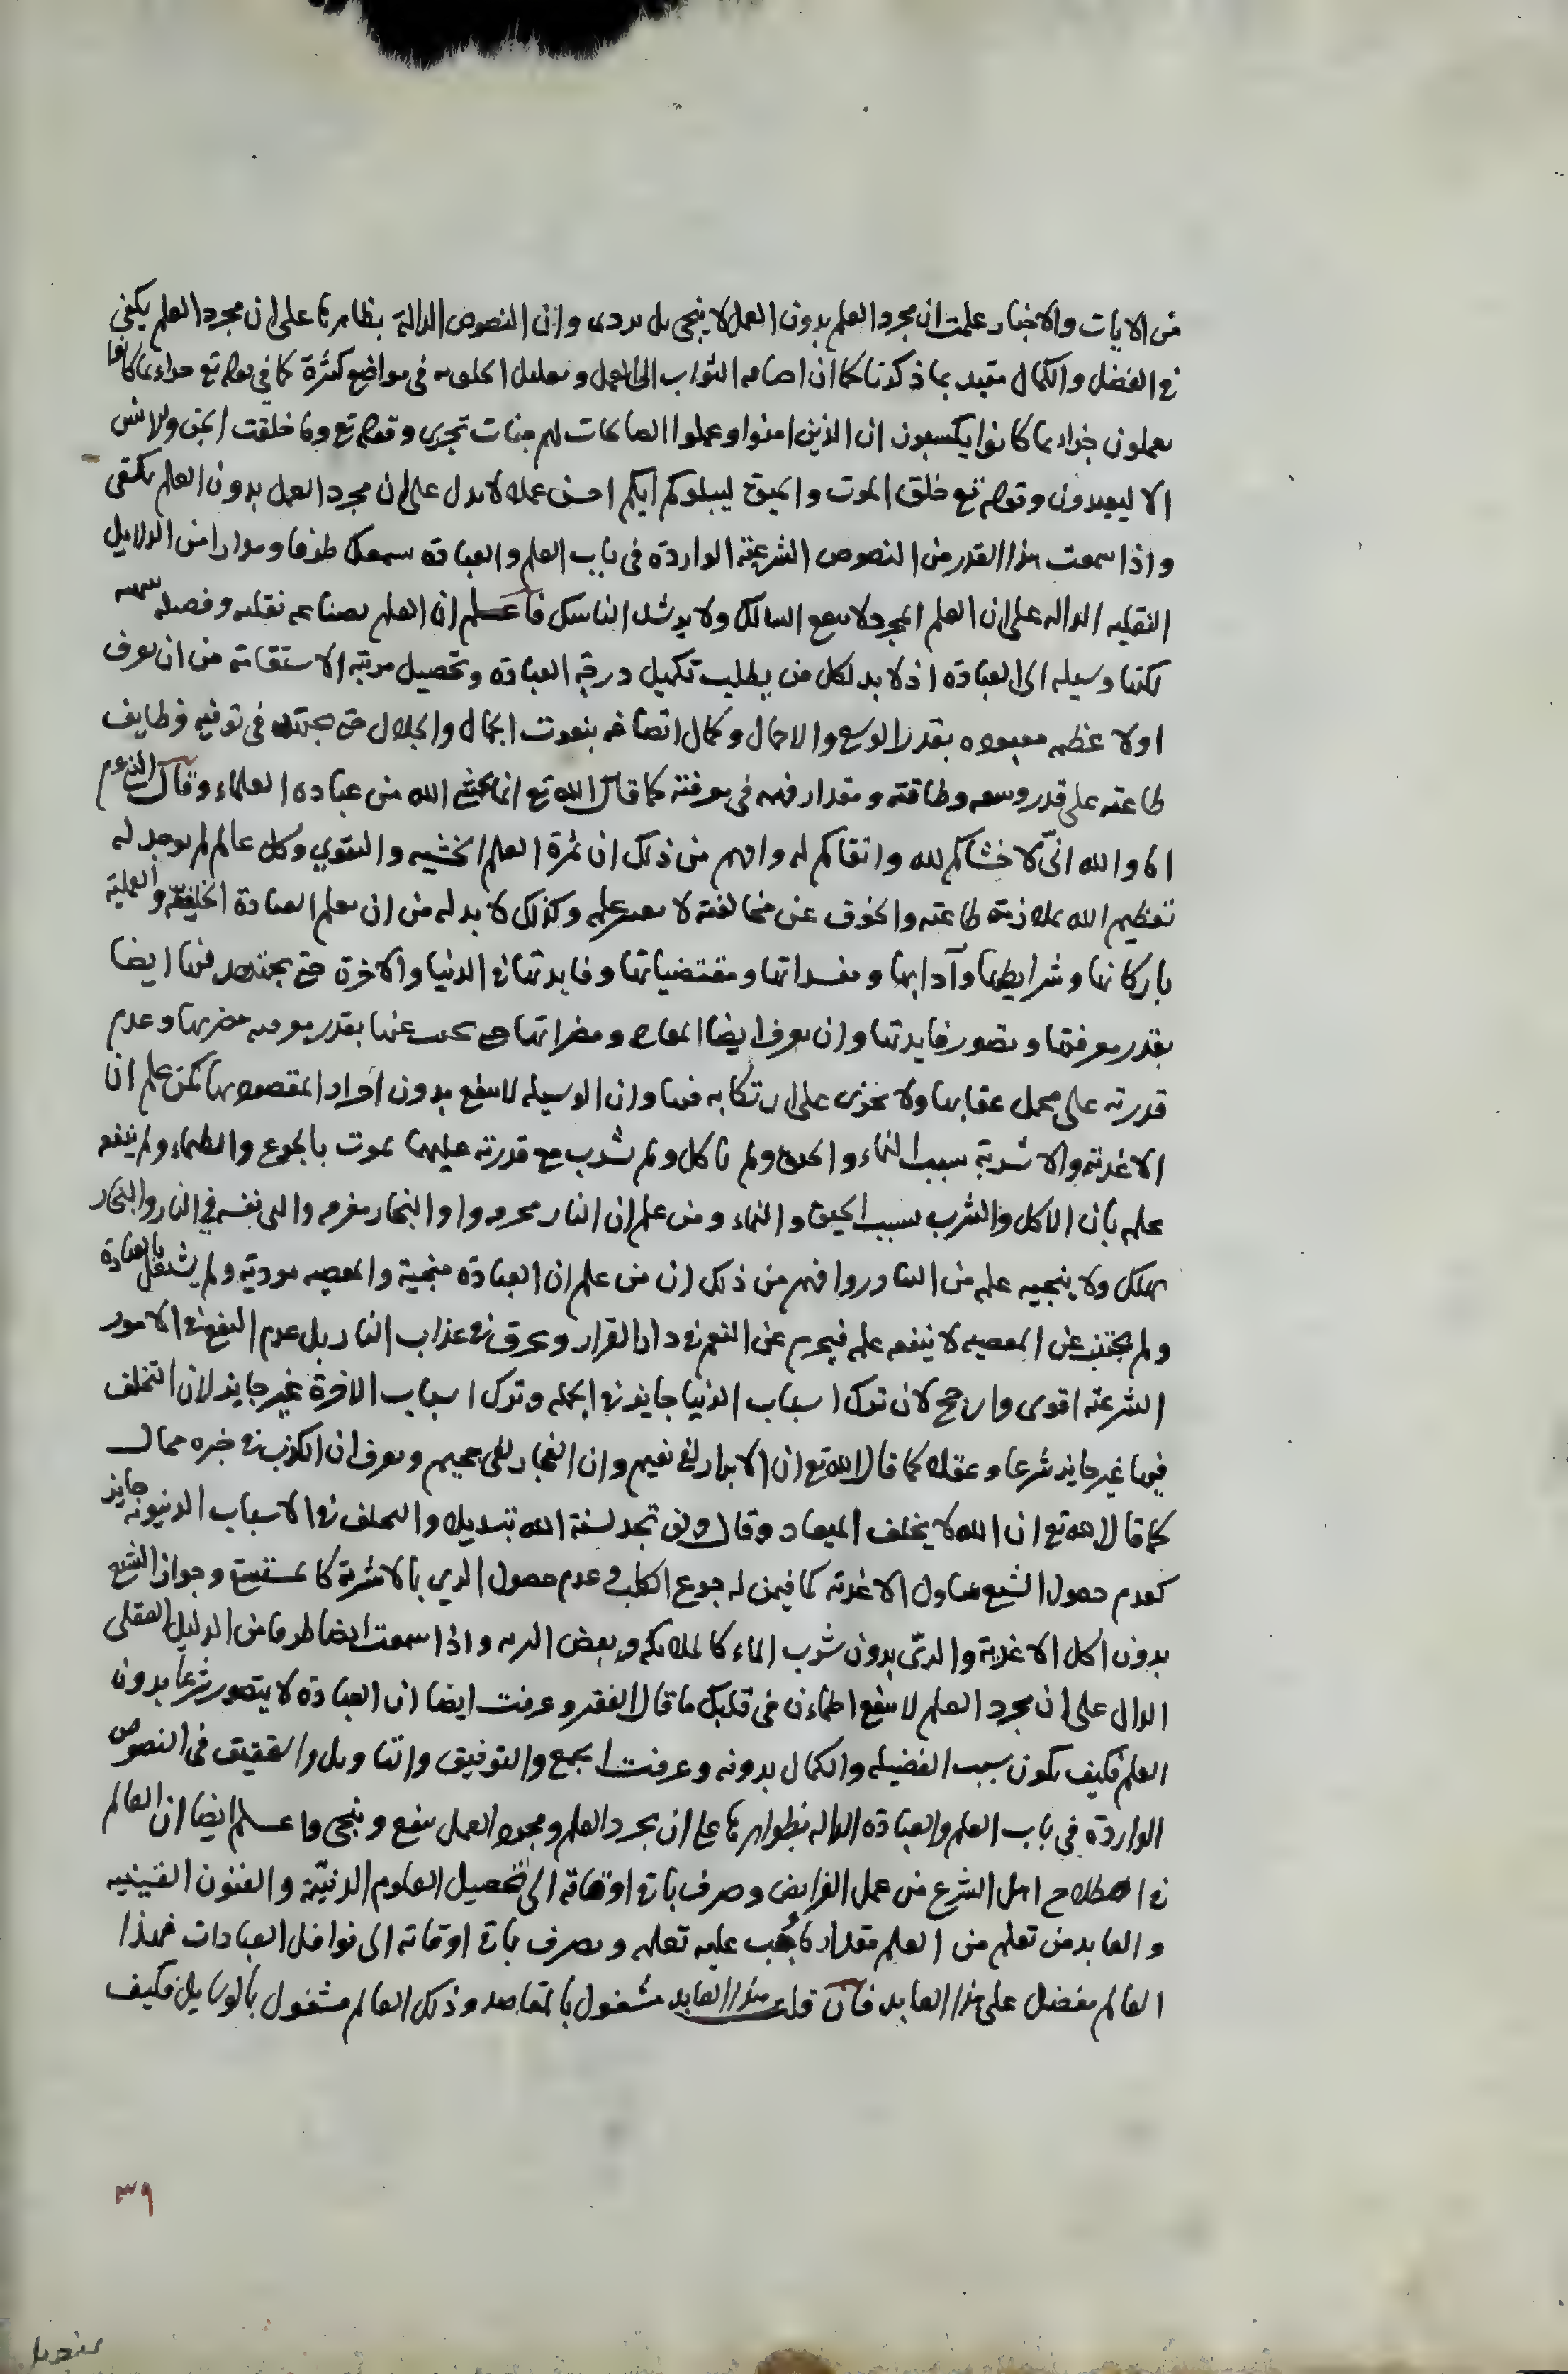 من الايات والاخبار علمت ان مجرد العلم بدون العمل لا ينجى بل يردى وان النصوص الدالة بظاهرها على ان مجرد العلم يكفى
فى الفضل والكمال مقيد بما ذكرنا كما ان اضافه الثواب الى العمل وتعليل الخلق به فى مواضع كثيرة كما فى قوله تع جزاء بما كانوا
يعملون جزاء بما كانوا يكسبون ان الذين امنوا وعملوا الصالحات لهم جنات تجرى وقوله تع وما خلقت الجن والانس
الا ليعبدون وقوله تع خلق الموت والحيوة ليبلوكم ايكم احسن عملا لا يدل على ان مجرد العمل بدون العلم يكفى
واذا سمعت هذا القدر من النصوص الشرعية الواردة فى باب العلم والعبادة سمعك طرفا من الدلايل
النقليه الداله على ان العلم المجرد لا ينفع السالك ولا يرشد الناسك فاعلم ان العلم بضاعه نفيسه
لكنها وسيله الى العبادة اذ لا بد لكل من يطلب تكميل درجة العبادة وتحصيل مرتبة الاستقامة من ان يعرف
اولا عظمه معبوده بقدر الوسع والاحمال وكمال اتصافه بنعوت الجمال والجلال حتى يجتهد فى توفيه وظايف
طاعته على قدر وسعه وطاقته ومقدار فهمه فى معرفته كما قال الله تع انما يخشى الله من عباده العلماء وقال النبى عم
اما والله انى لاخشاكم لله واتقاكم له وافهم من ذلك ان ثمرة العلم الخشيه والتقوي وكل عالم لم يوجد له
تعظيم الله بملازمة طاعته والخوف عن مخالفته لا يعتبر علمه وكذلك لا بد له من ان يعلم العبادة والعملية
باركانها وشرايطها وآدابها ومفسداتها ومقتضياتها وفايدتها فى الدنيا والاخرة حتى يجتهد فيها ايضا
بقدر معرفتها وتصور فايدتها وان يعرف ايضا المعاصى ومضراتها حتى يجتنب عنها بقدر معرفه مضرتها وعدم
قدرته على تحمل عقابها ولا يجزى على ارتكابه فيها وان الوسيله لا ينفع بدون المقصود بها كمن علم ان
الاغذية والاشربة سبب النماء والحيوة ولم ياكل ولم يشرب مع قدرته عليهما يموت بالجوع والظماء ولم ينفعه
علمه بان الاكل والشرب سبب الحيوة والنماء ومن علم ان النار محرقه والبحار مغرقه والقى نفسه فى النار والبحار
يهلك ولا ينجيه علمه من التبار وافهم من ذلك ان من علم ان العبادة منجية والمعصيه مردية ولم يشتغل بالعبادة
ولم يجتنب عن المعصيه لا ينفعه علمه فيحرم عن النعم فى دار القرار ويحرق فى عذاب النار بل عدم النفع فى الامور
الشرعيه اقوى وارجح لان ترك اسباب الدنيا جايز فى الجمله وترك اسباب الاخرة غير جايز لان التخلف
فيها غير جايز شرعا وعقلا كما قال الله تع ان الابرار لفى نعيم وان الفجار لفى جحيم ويعرف ان الكذب فى خبره محال
كما قال الله تع ان الله لا يخلف الميعاد وقال ولن تجد لسنة الله تبديلا والتخلف فى الاسباب الدنيويه جايز
كعدم حصول الشبع بتناول الاغذية كما فيمن له جوع الكلب وعدم حصول الرى بالاشربة كالمستسقى وجواز الشبع
بدون اكل الاغذية والرىّ بدون شرب الماء كالملائكة وبعض البريه واذا سمعت ايضا طرفا من الدليل العقلى
الدال على ان مجرد العلم لا ينفع اطمان فى قلبك ما قال الفقير وعرفت ايضا ان العبادة لا يتصور شرعا بدون
العلم فكيف يكون سبب الفضيله والكمال بدونه وعرفت الجمع والتوفيق والتاويل والتحقيق فى النصوص
الواردة فى باب العلم والعبادة الداله بظواهرها على ان مجرد العلم ومجرد العمل ينفع وينجى واعلم ايضا ان العالم
فى اصطلاح اهل الشرع من عمل الفرايض وصرف باقى اوقاته الى تحصيل العلوم الدنيّة والفنون اليقينيه
والعابد من تعلم من العلم مقدار ما يجب عليه تعلمه ويصرف باقى اوقاته الى نوافل العبادات فهذا
العالم مفضل على هذا العابد فان قلت هذا العابد مشغول بالمقاصد وذلك العالم مشغول بالوسايل فكيف
٣٩